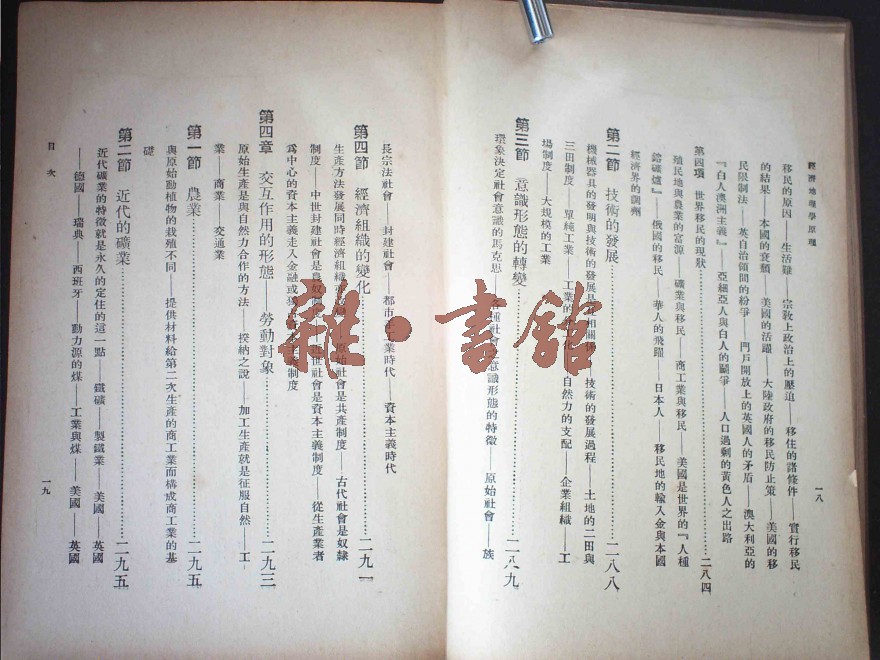 經濟地理學原理
一八
移民的原因——生活難——宗教上政治上的壓迫——移住的諸條件——實行移民
的結果——本國的衰頹——美國的活躍——大陸政府的移民防止策——美國的移
民限制法——英自治領間的紛爭——門戶開放上的英國人的矛盾——澳大利亞的
『白人澳洲主義』——亞細亞人與白人的鬭爭——人口過剩的黃色人之出路
第四項 世界移民的現狀……二八四
殖民地與農業的富源——礦業與移民——商工業與移民——美國是世界的『人種
鎔礦爐』——俄國的移民——華人的飛躍——日本人——移民地的輸入金與本國
經濟界的調劑
第二節 技術的發展……二八八
機械器具的發明與技術的發展是互相關聯——技術的發展過程——土地的二田與
三田制度——單純工業——工業的分化——自然力的支配——企業組織——工
場制度——大規模的工業
第三節 意識形態的轉變……二八九
環象決定社會意識的馬克思——各種社會之意識形態的特徵——原始社會——族
長宗法社會——封建社會——都市工業時代——資本主義時代
第四節 經濟組織的變化……二九一
生產方法發展同時經濟組織——原始社會是共產制度——古代社會是奴隸
制度——中世封建社會是農奴制度——近世社會是資本主義制度——從生產業者
爲中心的資本主義走入金融或主義制度
第四章 交互作用的形態——勞動對象……二九三
原始生產是與自然力合作的方法——揆納之說——加工生產就是征服自然——工
業——商業——交通業
第一節 農業……二九五
與原始動植物的栽殖不同——提供材料給第二次生產的商工業而構成商工業的基
礎
第二節 近代的礦業……二九五
近代礦業的特徵就是永久的定住的這一點——鐵礦——製鐵業——美國——英國
——德國——瑞典——西班牙——動力源的煤——工業與煤——美國——英國
目次
一九
雜·書館